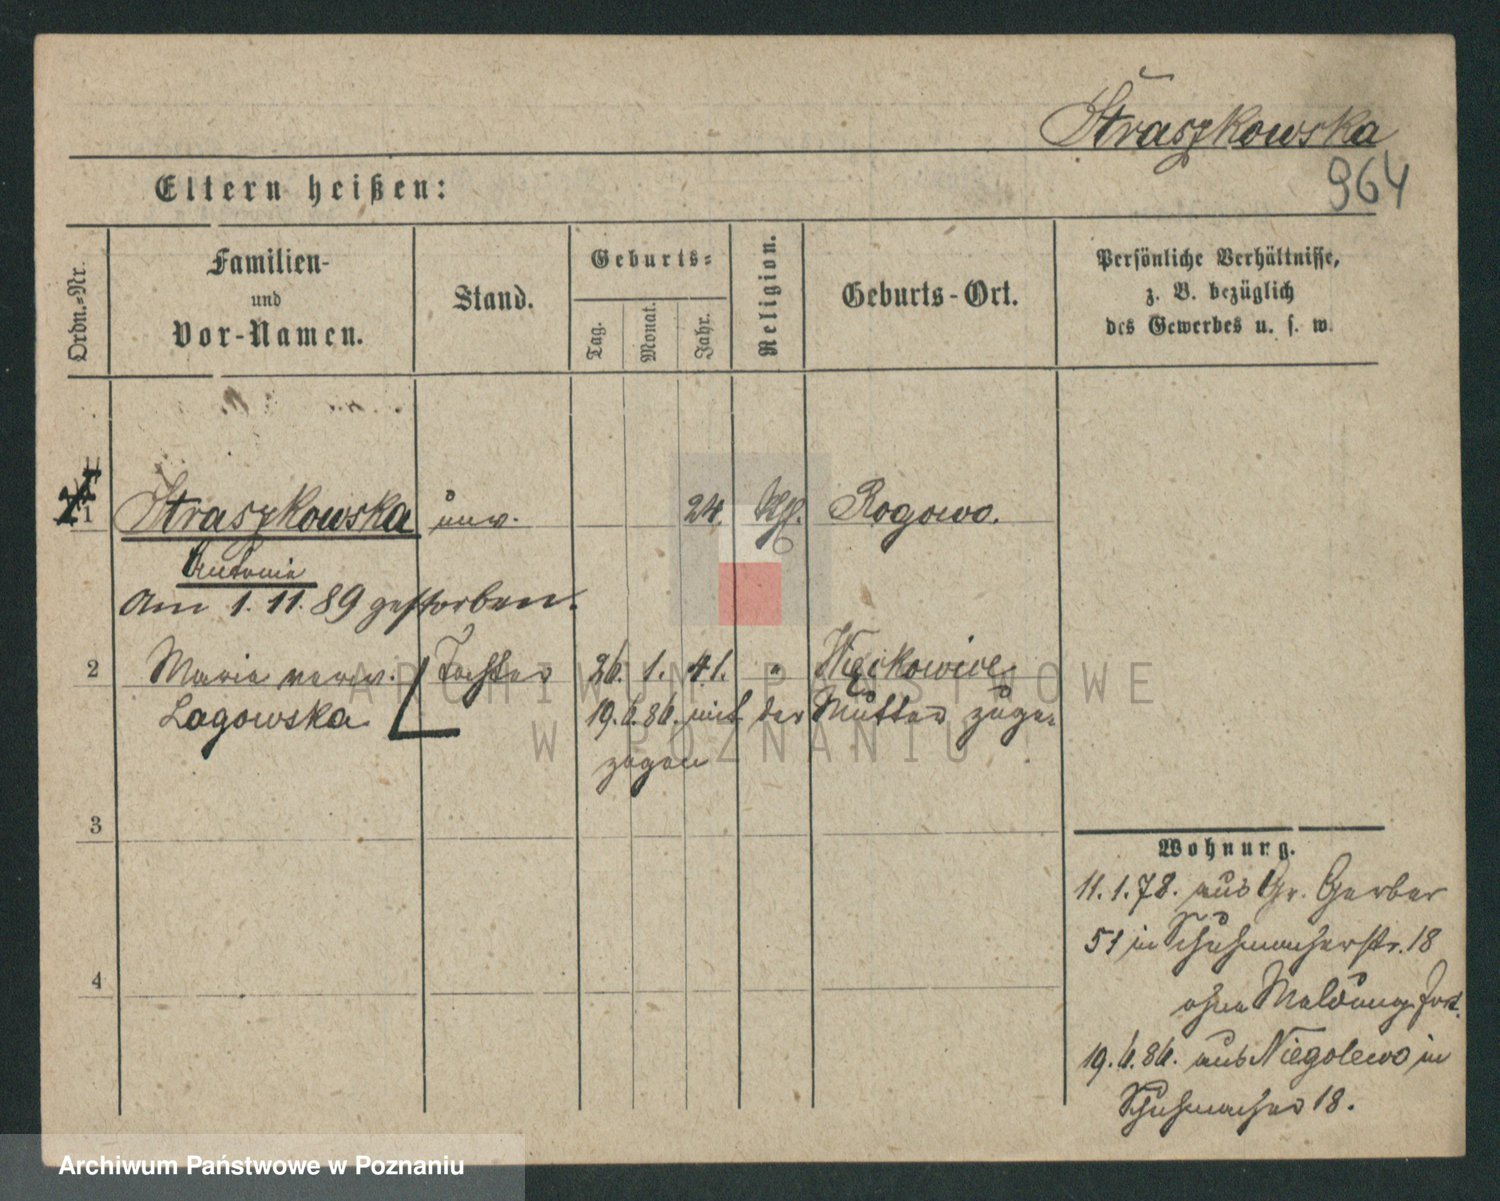 Straszkowska
964
Eltern heißen:
Ordn.-Nr.
Familien-
und
Vor-Namen.
Stand.
Geburts-
Tag.
Monat.
Jahr.
Religion.
Geburts-Ort.
Persönliche Verhältnisse,
z. B. bezüglich
des Gewerbes u. s. w.
1 Straszkowska unv. 24. Kth. Rogowo.
Antonie
Am 1. 11. 89 gestorben.
2 Maria verw. Tochter 26. 1. 41. " Więckowice
Lagowska 19.6.86. mit der Mutter zuge-
zogen
3
4
Wohnung.
11.1.78. aus Gr. Gerber
51 in Schuhmacherstr. 18
ohne Meldung fort.
19.6.86. aus Niegolewo in
Schuhmacher 18.
ARCHIWUM PAŃSTWOWE
W POZNANIU
Archiwum Państwowe w Poznaniu